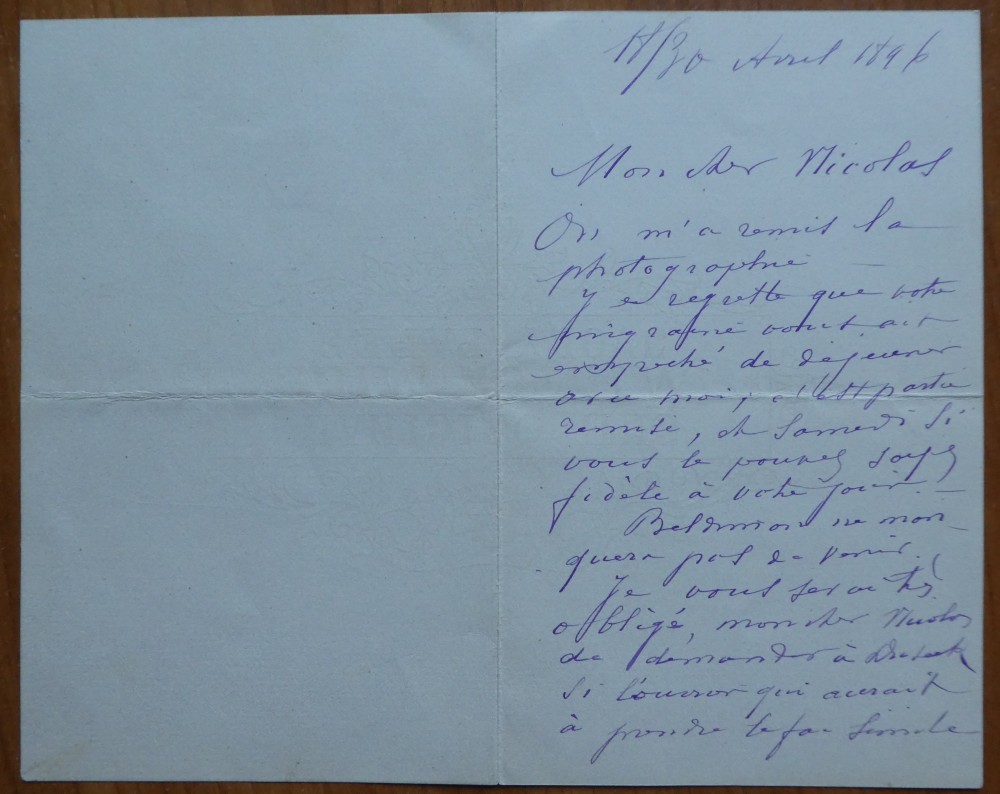 18/30 Avril 1896
Mon cher Nicolas
On m'a remis la
photographie —
Je regrette que votre
migraine vous ait
empeché de dejeuner
avec moi; c'est partie
remise, et Samedi si
vous le pouvez soyez
fidèle à votre jour. —
ne man
quera pas de venir.
Je vous serai très
obligé, mon cher Nicolas
de demander à
si l'ouvrier qui aurait
à prendre le fac simile